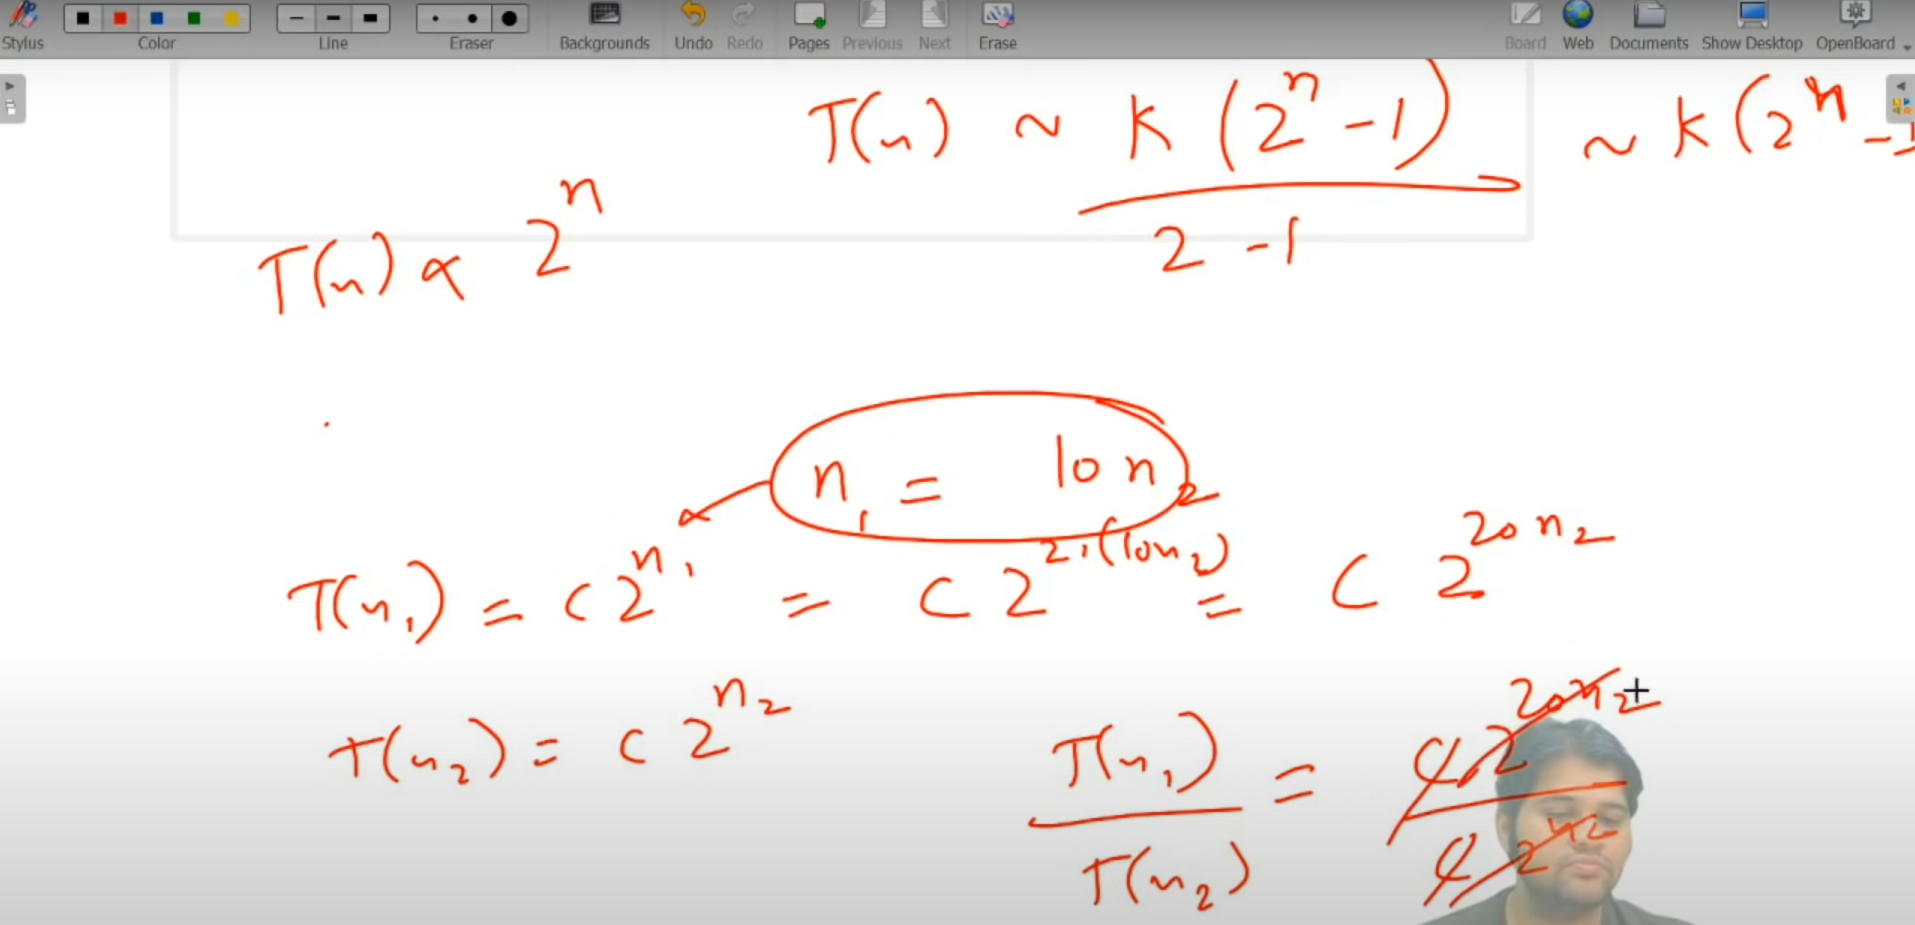 Stylus Color Line Eraser Backgrounds Undo Redo Pages Previous Next Erase Board Web Documents Show Desktop OpenBoard
T(n) ~ K (2^n - 1) ~ K (2^n - 1
2 - 1
T(n) ∝ 2^n
n₁ = 10 n₂
T(n₁) = C 2^n₁ = C 2^2.(10n₂) = C 2^20n₂
T(n₂) = C 2^n₂
T(n₁) = C.2^20n₂
T(n₂) C 2^n₂